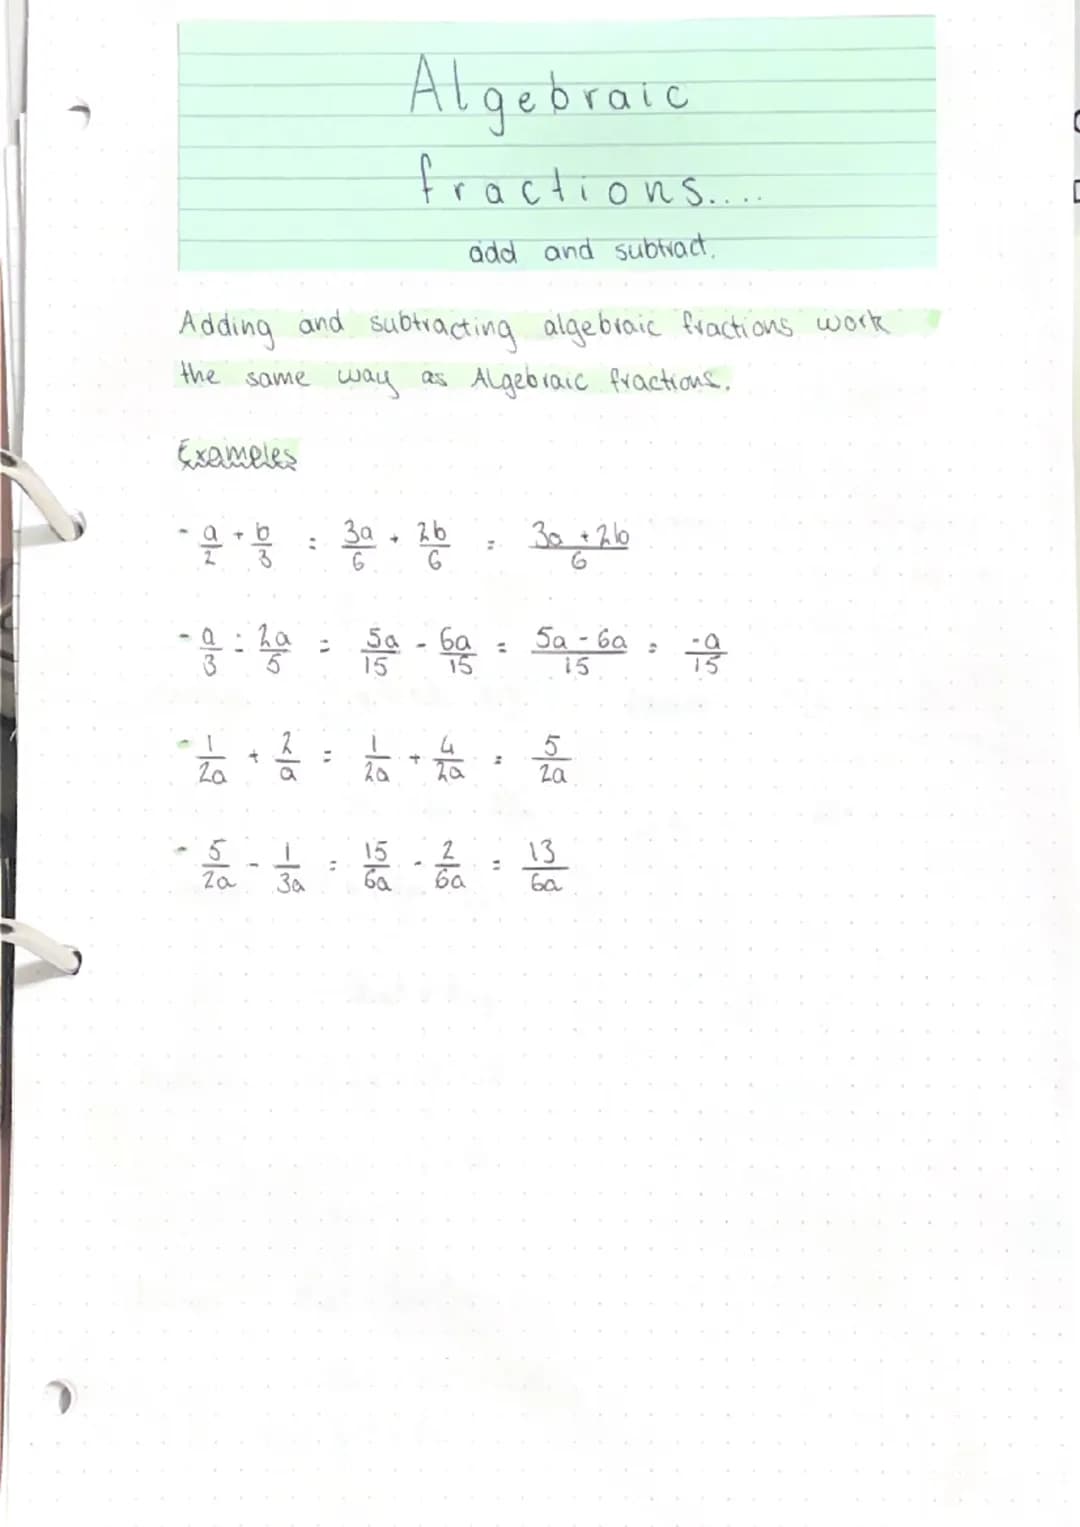 Algebraic
fractions....
add and subtract.
Adding and subtracting algebraic fractions work
the same way as Algebraic fractions.
Examples
- a/2 + b/3 = 3a/6 + 2b/6 = 3a + 2b/6
- a/3 : 2a/5 = 5a/15 - 6a/15 = 5a - 6a/15 = -a/15
- 1/2a + 2/a = 1/2a + 4/2a = 5/2a
- 5/2a - 1/3a = 15/6a - 2/6a = 13/6a